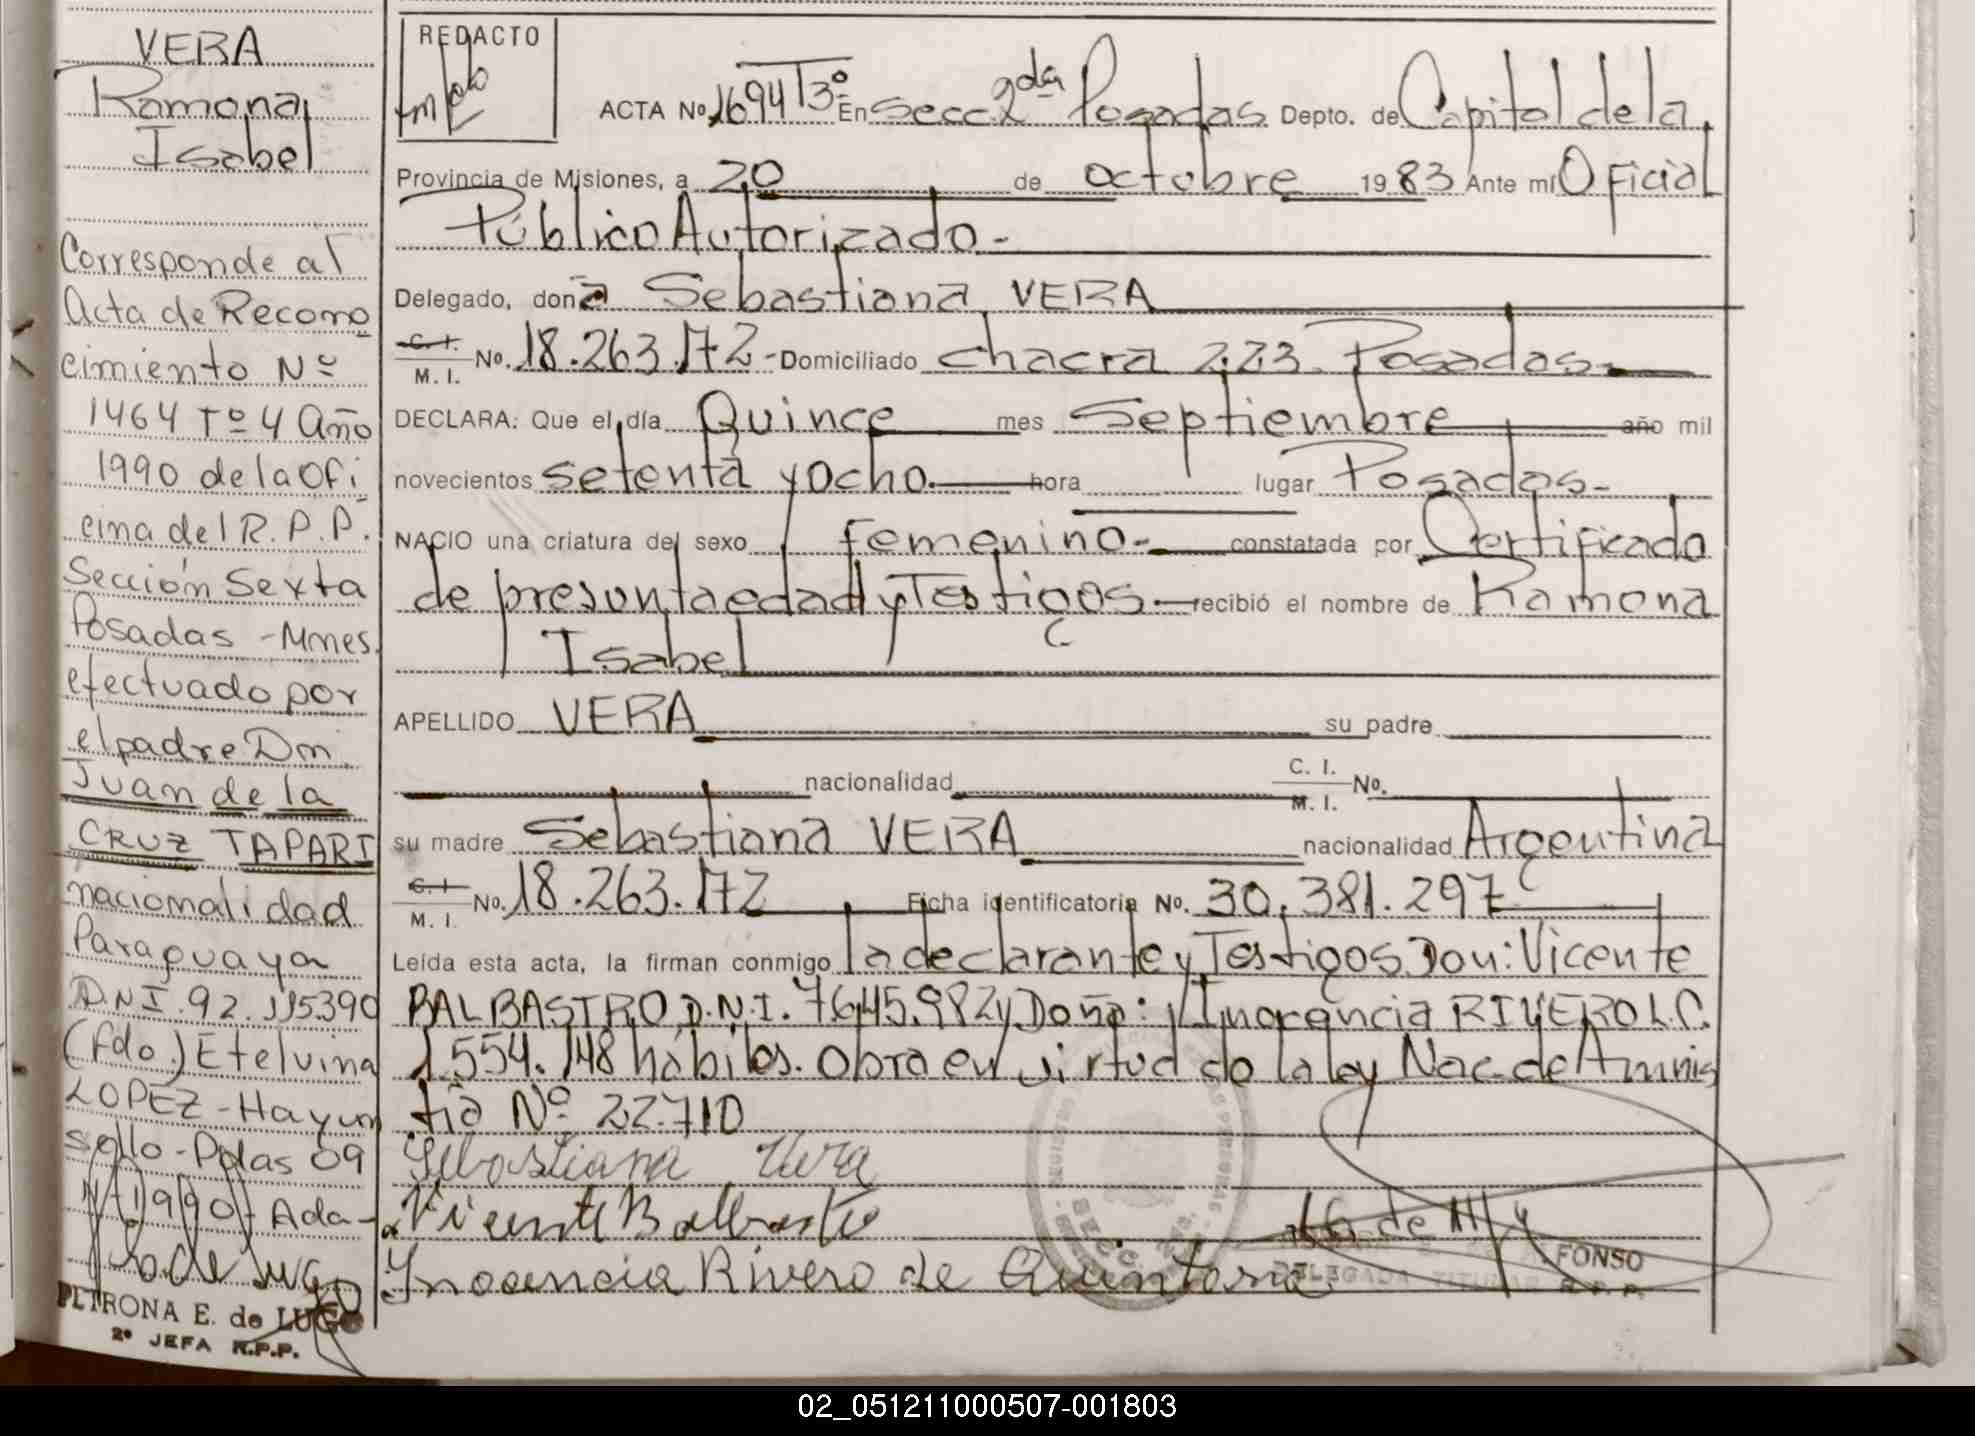 VERA
Ramona
Isabel
Corresponde al
Acta de Recono
cimiento Nº
1464 Tº 4 Año
1990 de la Ofi
cina del R.P.P.
Sección Sexta
Posadas - Mnes.
efectuado por
el padre Dn.
Juan de la
CRUZ TAPARI
nacionalidad
Paraguaya
D.N.I. 92.115390
(fdo.) Etelvina
LOPEZ - Hay un
sello - Pdas 09
1990 - Ada-
de Lugo
PETRONA E. de LUGO
2º JEFA R.P.P.
REDACTO
ACTA Nº 1694 Tº 3º En Secc. 2da Posadas Depto. de Capital de la
Provincia de Misiones, a 20 de octubre 1983 Ante mí Oficial
Público Autorizado -
Delegado, doña Sebastiana VERA
C. I. M. I. No. 18.263.172 - Domiciliado chacra 223. Posadas -
DECLARA: Que el día Quince mes Septiembre año mil
novecientos setenta y ocho. hora lugar Posadas -
NACIO una criatura del sexo femenino - constatada por Certificado
de presunta edad y Testigos - recibió el nombre de Ramona
Isabel
APELLIDO VERA su padre
nacionalidad C. I. M. I. No.
su madre Sebastiana VERA nacionalidad Argentina
C. I. M. I. No. 18.263.172 Ficha identificatoria No. 30.381.297
Leída esta acta, la firman conmigo la declarante y Testigos Don: Vicente
BALBASTRO D.N.I. 7.645.982 y Doña: Inocencia RIVERO L.C.
1.554.148 hábiles. Obra en virtud de la ley Nac. de Amnis
tia Nº 22.710
Sebastiana Vera
Vicente Balbastro
Inocencia Rivero de Quintana
FONSO
DELEGADA TITULAR R.P.P.
02_051211000507-001803